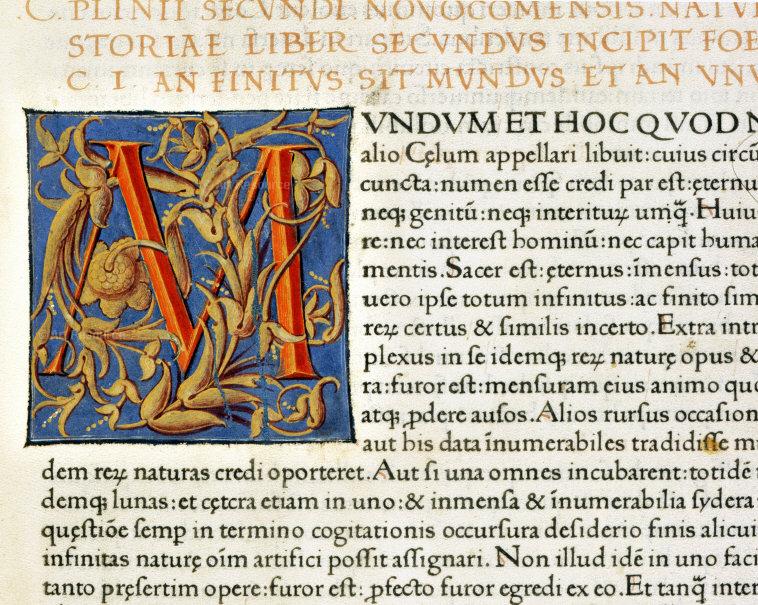 .C. PLINII SECVNDI. NOVOCOMENSIS. NATV
STORIAE LIBER SECVNDVS INCIPIT FOE
C. I AN FINITVS SIT MVNDVS ET AN VNV
M
VNDVM ET HOC QVOD N
alio Cęlum appellari libuit: cuius circū
cuncta: numen eſſe credi par eſt: ęternu
neqꝫ genitū: neqꝫ interituꝝ umq̃. Huiu
re: nec intereſt hominū: nec capit huma
mentis. Sacer eſt: ęternus: īmenſus: tot
uero ipſe totum infinitus: ac finito ſim
reꝝ certus & ſimilis incerto. Extra intr
plexus in ſe idemqꝫ reꝝ naturę opus &
ra: furor eſt: menſuram eius animo quo
atqꝫ ꝓdere auſos. Alios rurſus occaſion
aut his data īnumerabiles tradidiſſe m
dem reꝝ naturas credi oporteret. Aut ſi una omnes incubarent: totidē
demqꝫ lunas: et cętcra etiam in uno: & inmenſa & īnumerabilia ſydera
quęſtiōe ſemꝑ in termino cogitationis occurſura deſiderio finis alicui
infinitas naturę oīm artifici poſſit aſſignari. Non illud idē in uno faci
tanto pręſertim opere: furor eſt: ꝓfecto furor egredi ex eo. Et tanq̃ inter